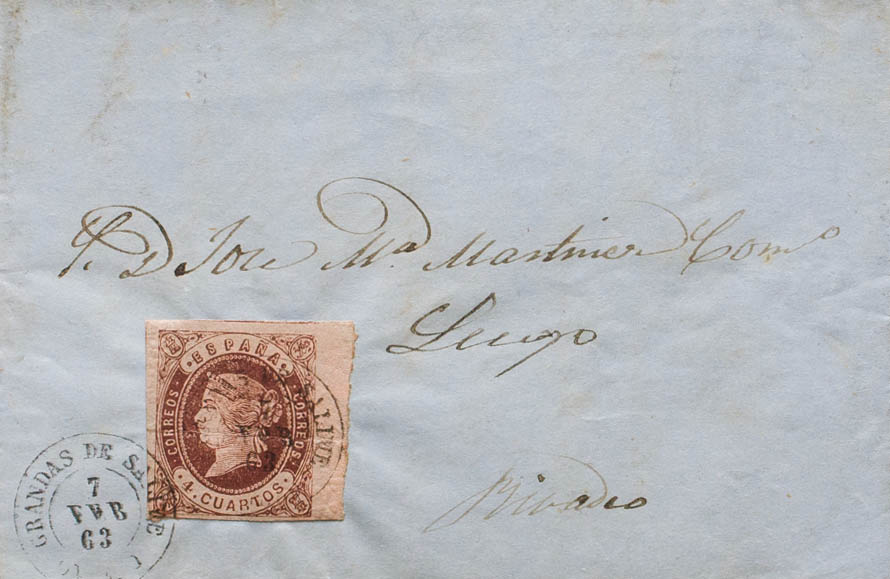 S. D José Mª Martinez Comº
Lugo
Rivadeo
ESPAÑA
CORREOS
CORREOS
4 CUARTOS
FEB
63
GRANDAS DE SALIME
7
FEB
63